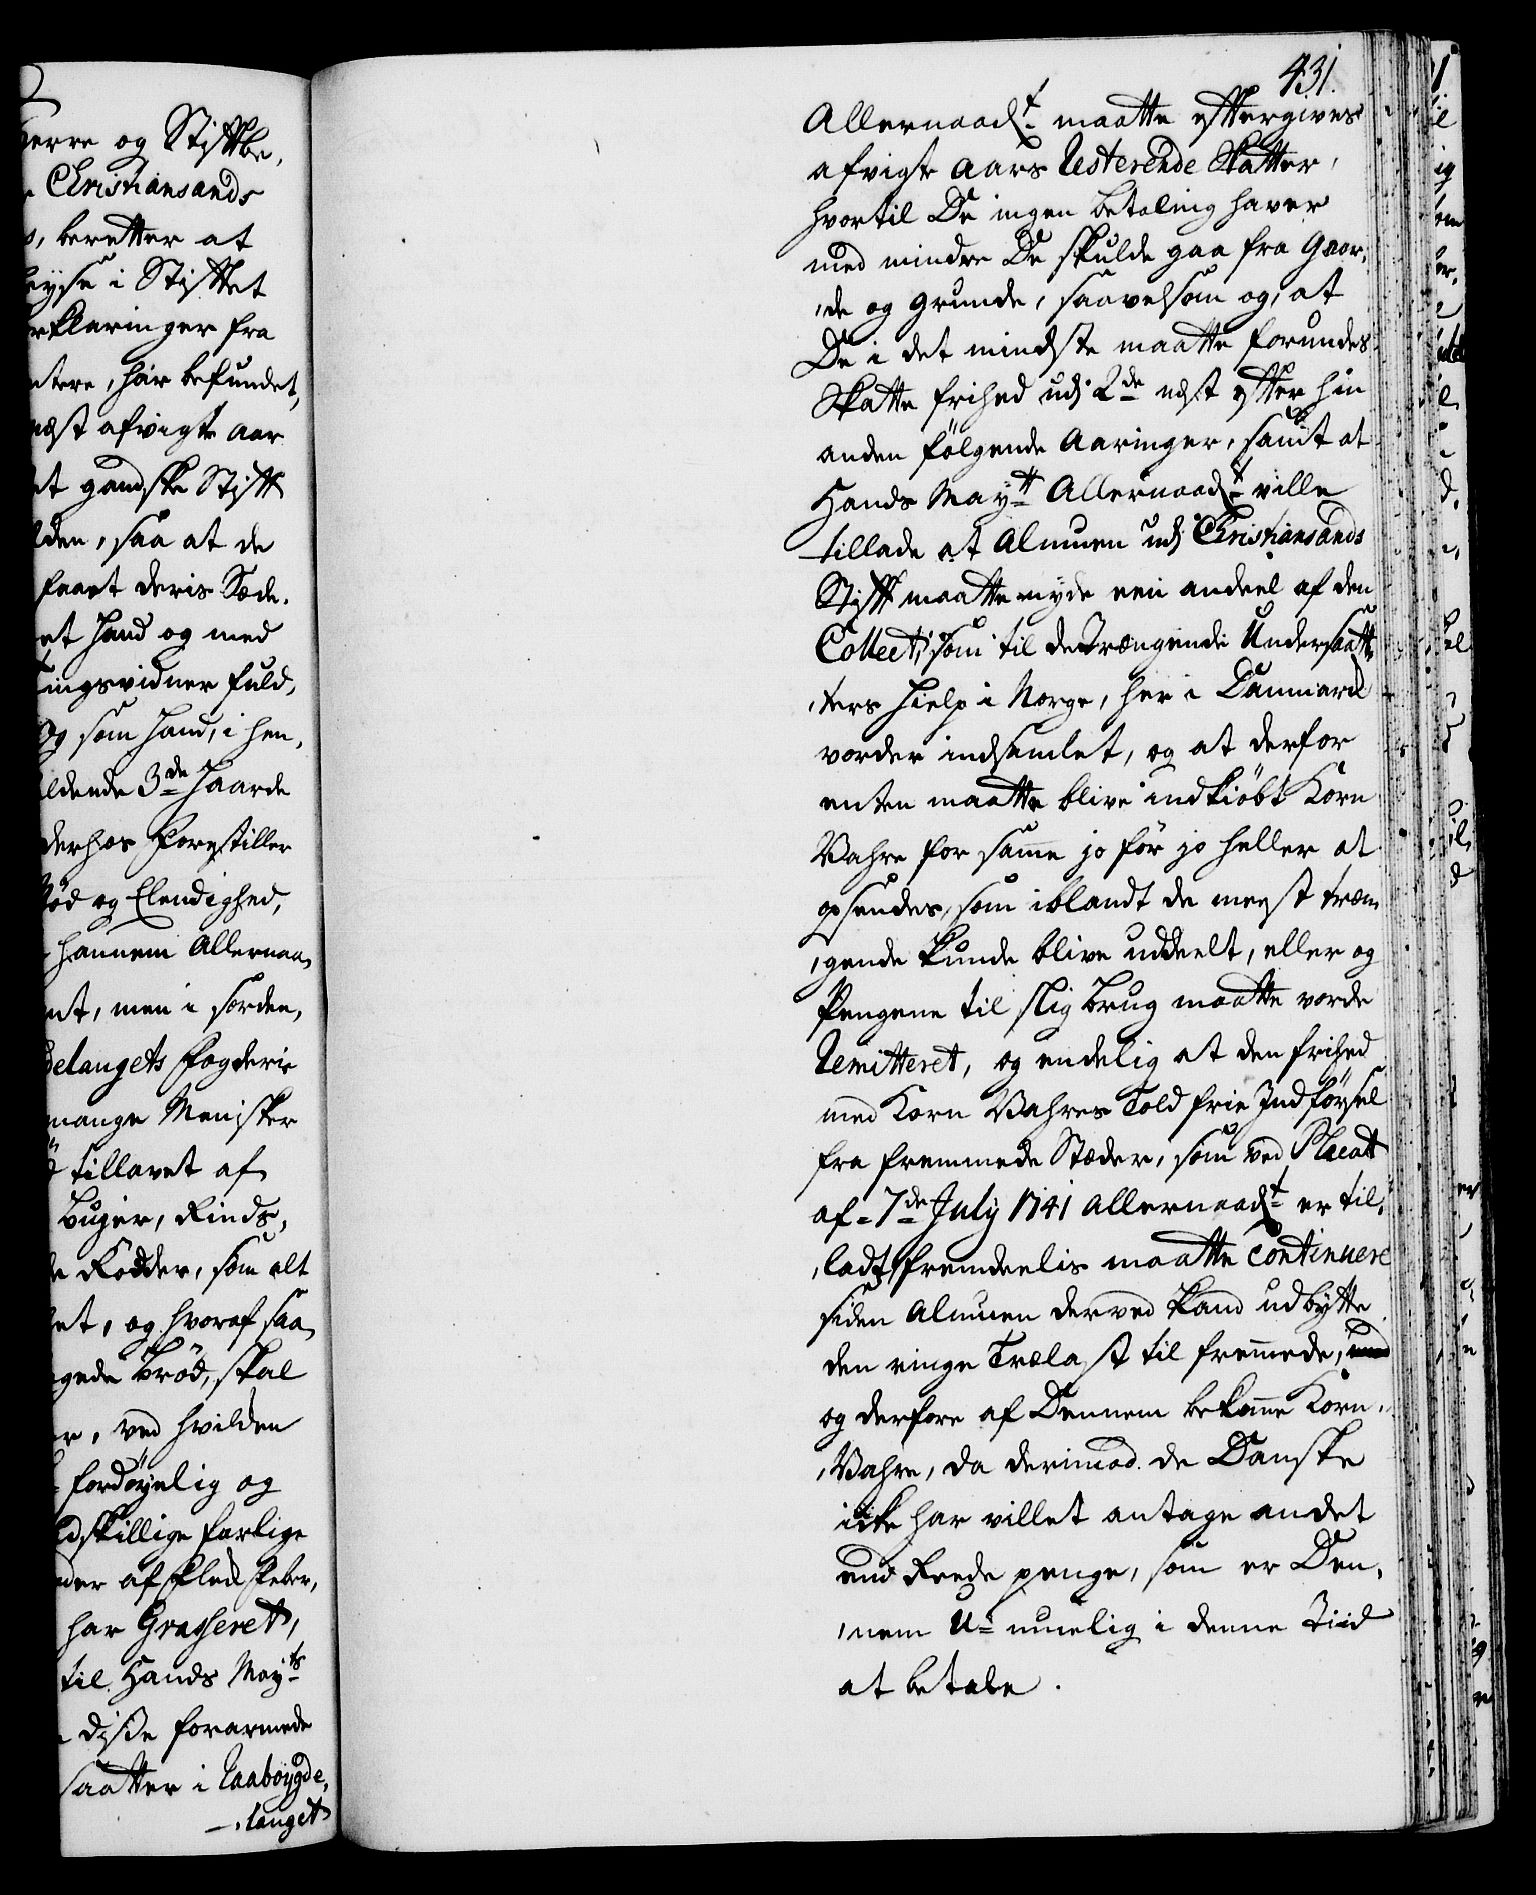 erre og Stiftbe,
Christiansands
, beretter at
eyse i Stiftet
rklaringer fra
ntere, har befundet,
næst afvigte Aar
et gandske Stift
den, saa at de
faaet deris Sæde,
et hand og med
ingsvidner fuld,
og som hand, i hen,
ldende 3de Haarde
derhos forestiller
Nød og Elendighed,
hannem Allernaa,
nt, men i sørdee,
delaugets Fogderie
mange Menisker
tillavet af
buger, Rinds,
Rødder, som alt
et, og hvoraf saa
gede Brød, skal
r, ved hvilcken
fordøyelig og
dskillige farlige
der af Flec feber,
har Grasseret,
til Hands Mayts
disse forarmede
saatter i Raabøygde,
-lauget
431.
Allernaadt maatte eftergives
afvigte Aars Resterende Skatter,
hvortil De ingen betaling haver
med mindre De skulde gaa fra Gaar,
,de og Grunde, saavelsom og, at
De i det mindste maatte forundes
Skatte frihed udj 2de nest efter hin
anden følgende Aaringer, samt at
Hands Maytt Allernaadt ville
tillade at Almuen udj Christiansands
Stift maatte nyde een andeel af den
Collect, som til de Trængende Undersaat,
,ters hielp i Norge, her i Danmarck
vorder indsamlet, og at derfor
enten maatte blive indkiøbt Korn
Vahre for same jo før jo heller at
opsendes, som iblandt de meest træn,
,gende kunde blive uddeelt, eller og
Pengene til slig brug maatte vorde
Remitteret, og endelig at den frihed
med Korn Vahres Told frie Indførsel
fra fremmede Stæder, som ved Placat
af 7de July 1741 Allernaadt er til,
,ladt, fremdeelis maatte Continuere
siden Almuen derved kand udbytte
den ringe Trælast til fremede,
og derfore af Dennem bekome Korn,
,Vahre, da derimod de Danske
icke har villet antage andet
end Reede penge, som er Den,
,nem U-muelig i denne Tiid
at betale.